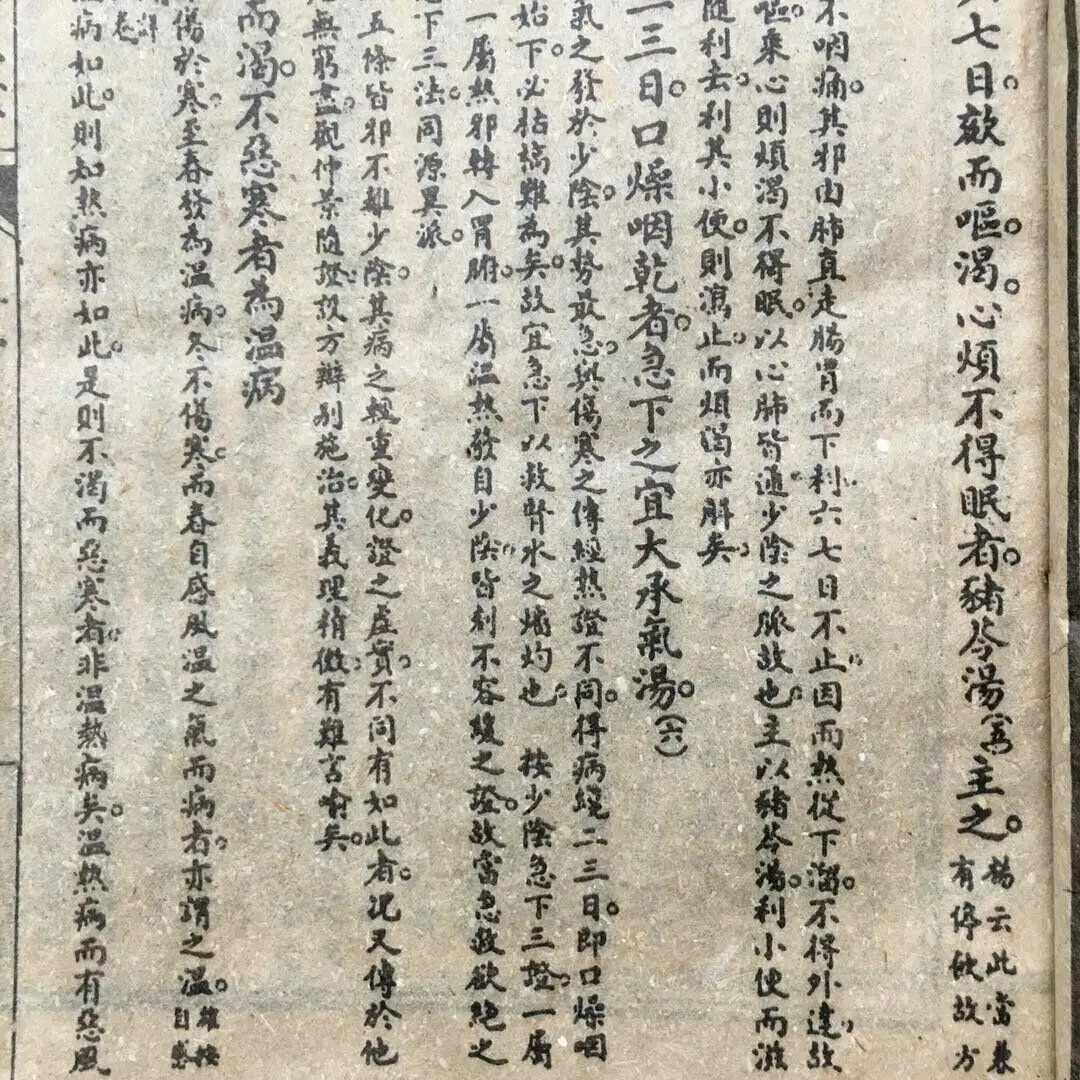 七日。欬而嘔。渴。心煩不得眠者。豬苓湯主之。楊云此當兼
有停飲故方
不咽痛。其邪由肺直走腸胃而下利。六七日不止。因而熱從下溜。不得外達。故
嘔。乘心則煩渴不得眠。以心肺皆通少陰之脈故也。主以豬苓湯。利小便而滋
隨利去。利其小便。則瀉止而煩渴亦解矣。
三日。口燥咽乾者。急下之宜大承氣湯。(六)
氣之發於少陰。其勢最急。與傷寒之傳經熱證不同。得病纔二三日。即口燥咽
始下。必枯槁難為矣。故宜急下以救腎水之燔灼也。 按少陰急下三證。一屬
一屬熱邪轉入胃腑。一屬溫熱發自少陰。皆刻不容緩之證。故當急救欲絕之
下三法。同源異派。
五條皆邪不離少陰。其病之輕重變化。證之虛實。不同有如此者。況又傳於他
無窮盡。觀仲景隨證設方。辨別施治。其義理精微。有難言喻矣。
而渴。不惡寒者。為溫病
傷於寒。至春發為溫病。冬不傷寒。而春自感風溫之氣而病者。亦謂之溫。雖按
自感
病如此。則知熱病亦如此。是則不渴而惡寒者。非溫熱病矣。溫熱病而有惡風